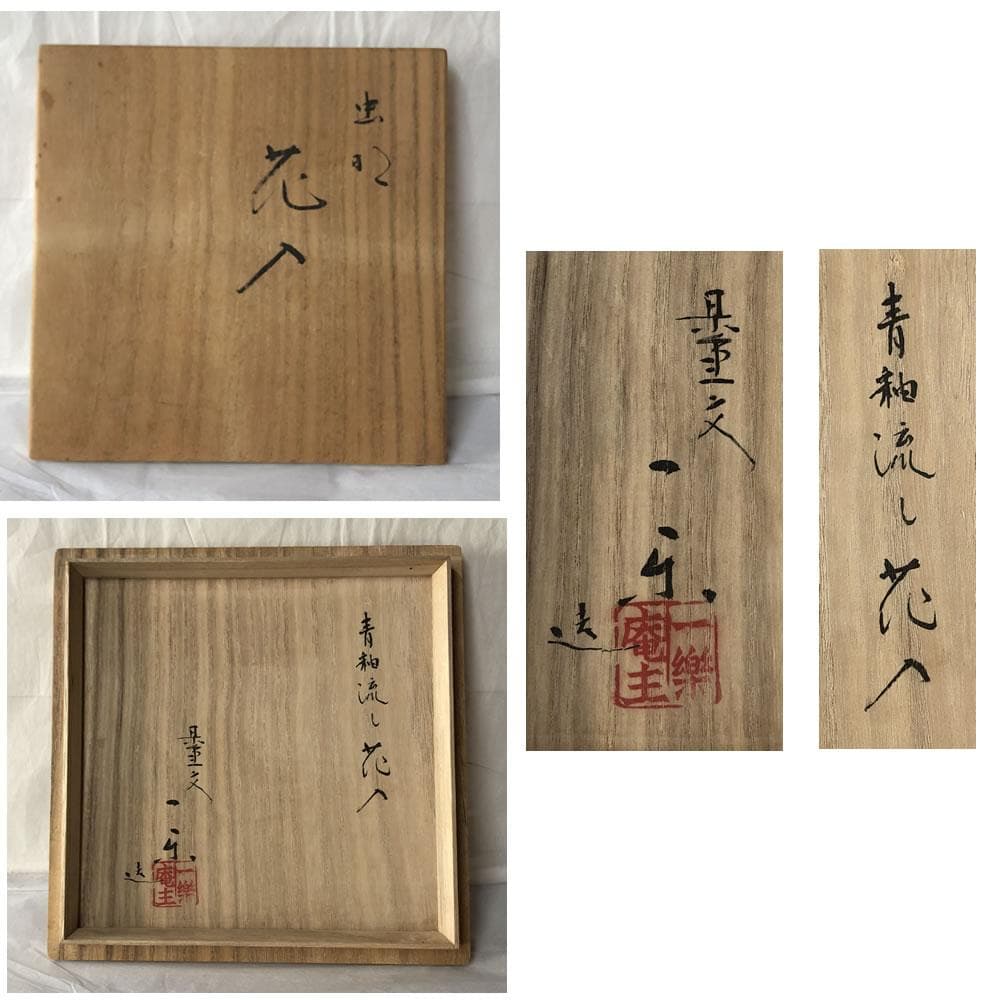 虫明
花入
青釉流し花入
県重文
一楽
造
一樂
庵主
県重文
一楽
造
一樂
庵主
青釉流し花入